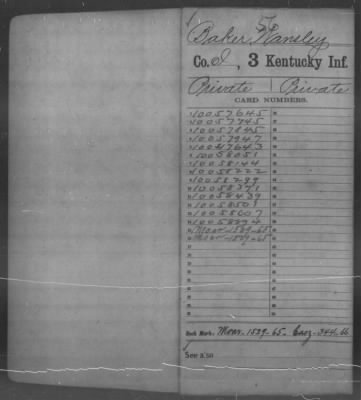 Baker, Hansley
Co. I, 3 Kentucky Inf.
Private | Private
CARD NUMBERS.
10057645
10057745
10057845
10057947
10047643
10058051
10058144
10058222
10058299
10058371
10058439
10058501
10058607
10058894
Moor-1529-65
Moor-1529-65
Book Mark: Moor-1529-65.
See also